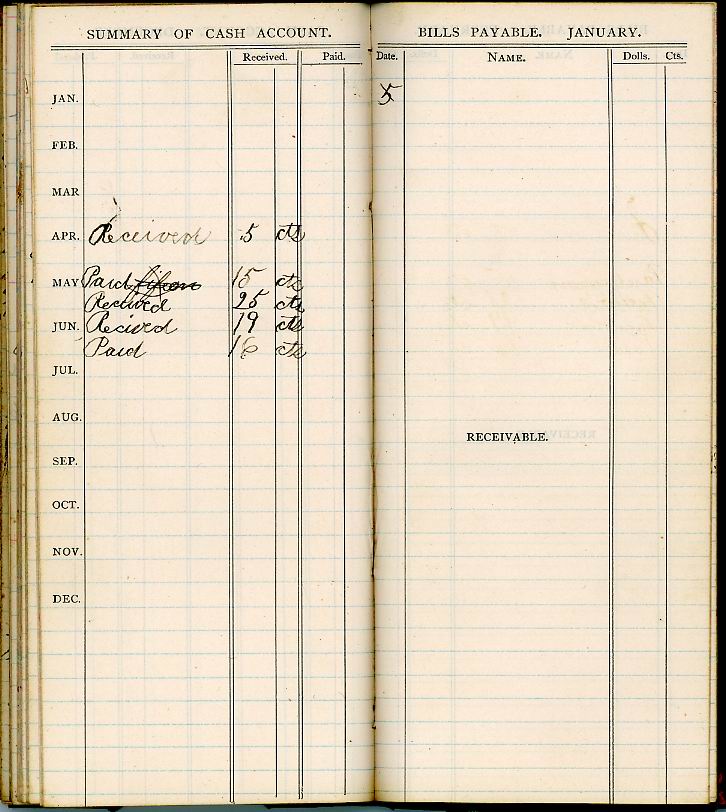 SUMMARY OF CASH ACCOUNT.
Received. Paid.
JAN.
FEB.
MAR
APR. Received 5 cts
MAY Paid fifteen 15 cts
Received 25 cts
JUN. Recived 19 cts
Paid 16 cts
JUL.
AUG.
SEP.
OCT.
NOV.
DEC.
BILLS PAYABLE. JANUARY.
Date. NAME. Dolls. Cts.
5
RECEIVABLE.